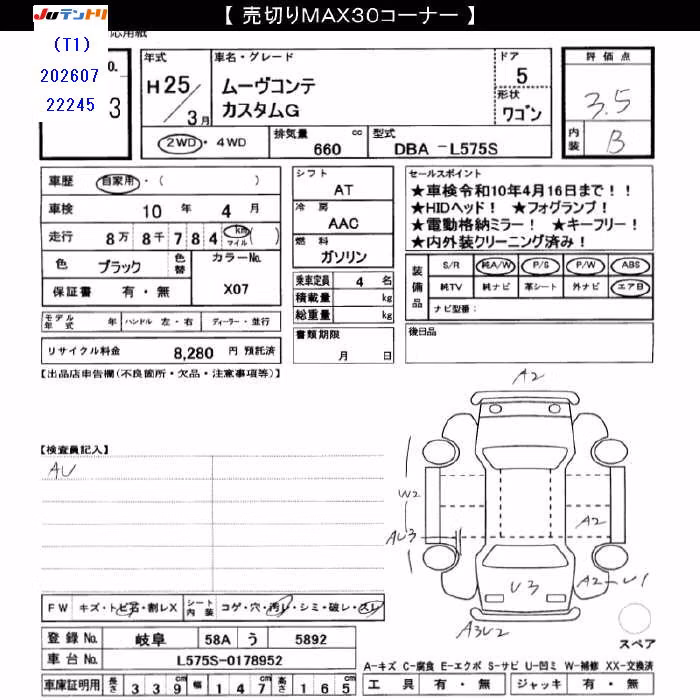 【 売切りMAX30コーナー 】
JUテントリ
応用紙
(T1)
202607
22245
o.
3
年式
H25/3月
車名・グレード
ムーヴコンテ
カスタムG
ドア
5
形状
ワゴン
評価点
3.5
内装
B
2WD・4WD
排気量 660 cc
型式 DBA -L575S
車歴 自家用・( )
車検 10年 4月
走行 8万8千784 km マイル ( )
色 ブラック
色替
カラーNo. X07
保証書 有・無
シフト
AT
冷房
AAC
燃料
ガソリン
乗車定員 4 名
積載量 kg
総重量 kg
書類期限
月 日
セールスポイント
★車検令和10年4月16日まで!!
★HIDヘッド! ★フォグランプ!
★電動格納ミラー! ★キーフリー!
★内外装クリーニング済み!
装備品
S/R 純A/W P/S P/W ABS
純TV 純ナビ 革シート 外ナビ エアB
ナビ型番:
後日品
モデル年式 年 ハンドル 左・右 ディーラー・並行
リサイクル料金 8,280 円 預託済
【出品店申告欄(不良箇所・欠品・注意事項等)】
【検査員記入】
AU
A2
W2
AU3
A2
A2
U1
U3
A3U2
スペア
FW キズ・トビ石・割レX
シート内装 コゲ・穴・汚レ・シミ・破レ・スレ
登録No. 岐阜 58A う 5892
車台No. L575S-0178952
車庫証明用 長さ 339 幅 147 高さ 165
A-キズ C-腐食 E-エクボ S-サビ U-凹ミ W-補修 XX-交換済
工具 有・無 ジャッキ 有・無